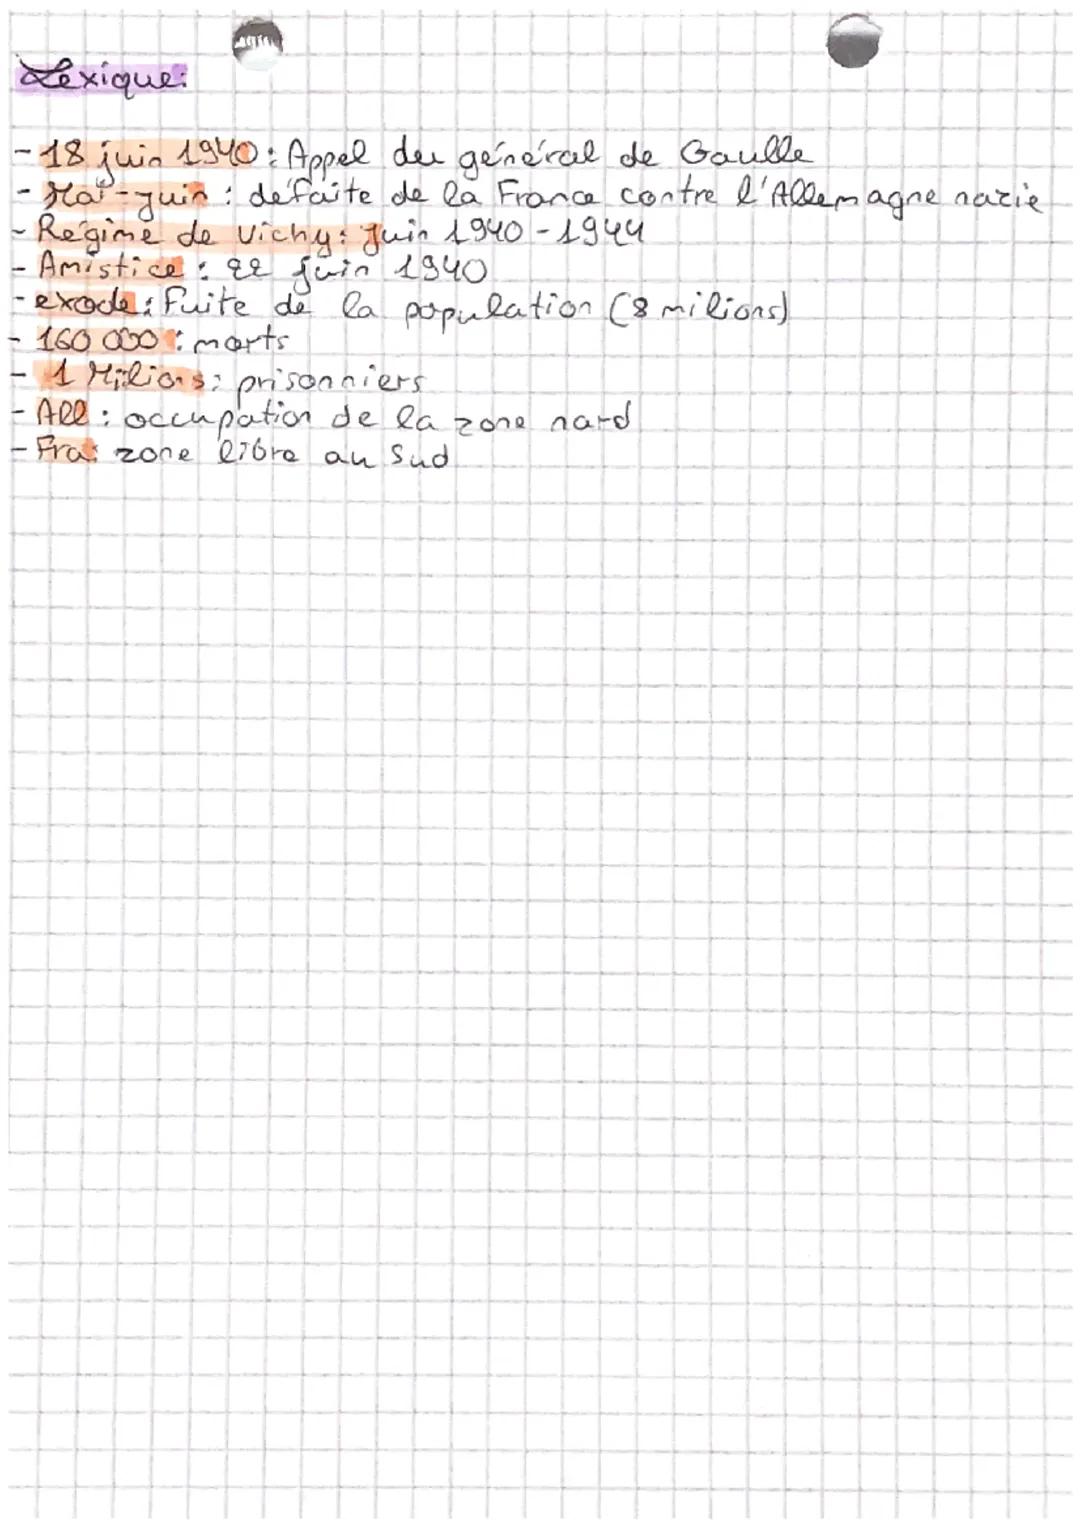 Lexique:
- 18 juin 1940 : Appel du général de Gaulle
- Mai-juin : défaite de la France contre l'Allemagne nazie
- Régime de Vichy : Juin 1940 - 1944
- Amistice : 22 juin 1940
- exode : Fuite de la population (8 milions)
- 160 000 : morts
- 1 Milions : prisonniers
- All : occupation de la zone nord
- Fra : zone libre au Sud